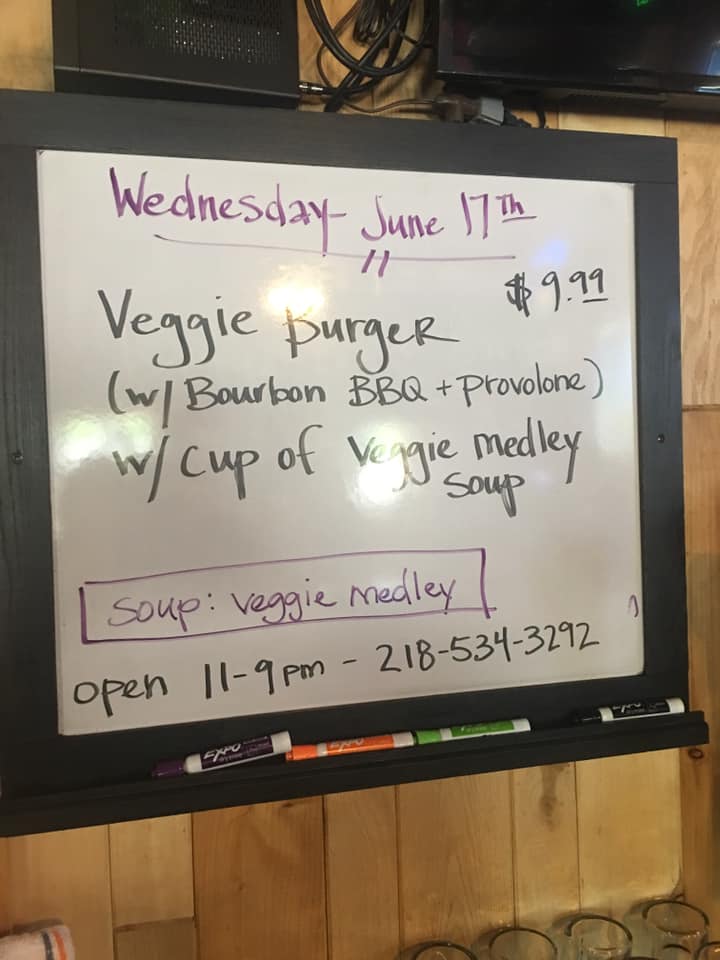 Wednesday June 17Th
Veggie Burger $9.99
(w/ Bourbon BBQ + Provolone)
w/ cup of Veggie medley
Soup
Soup: veggie medley
open 11-9pm - 218-534-3292
EXPO
EXPO
EXPO